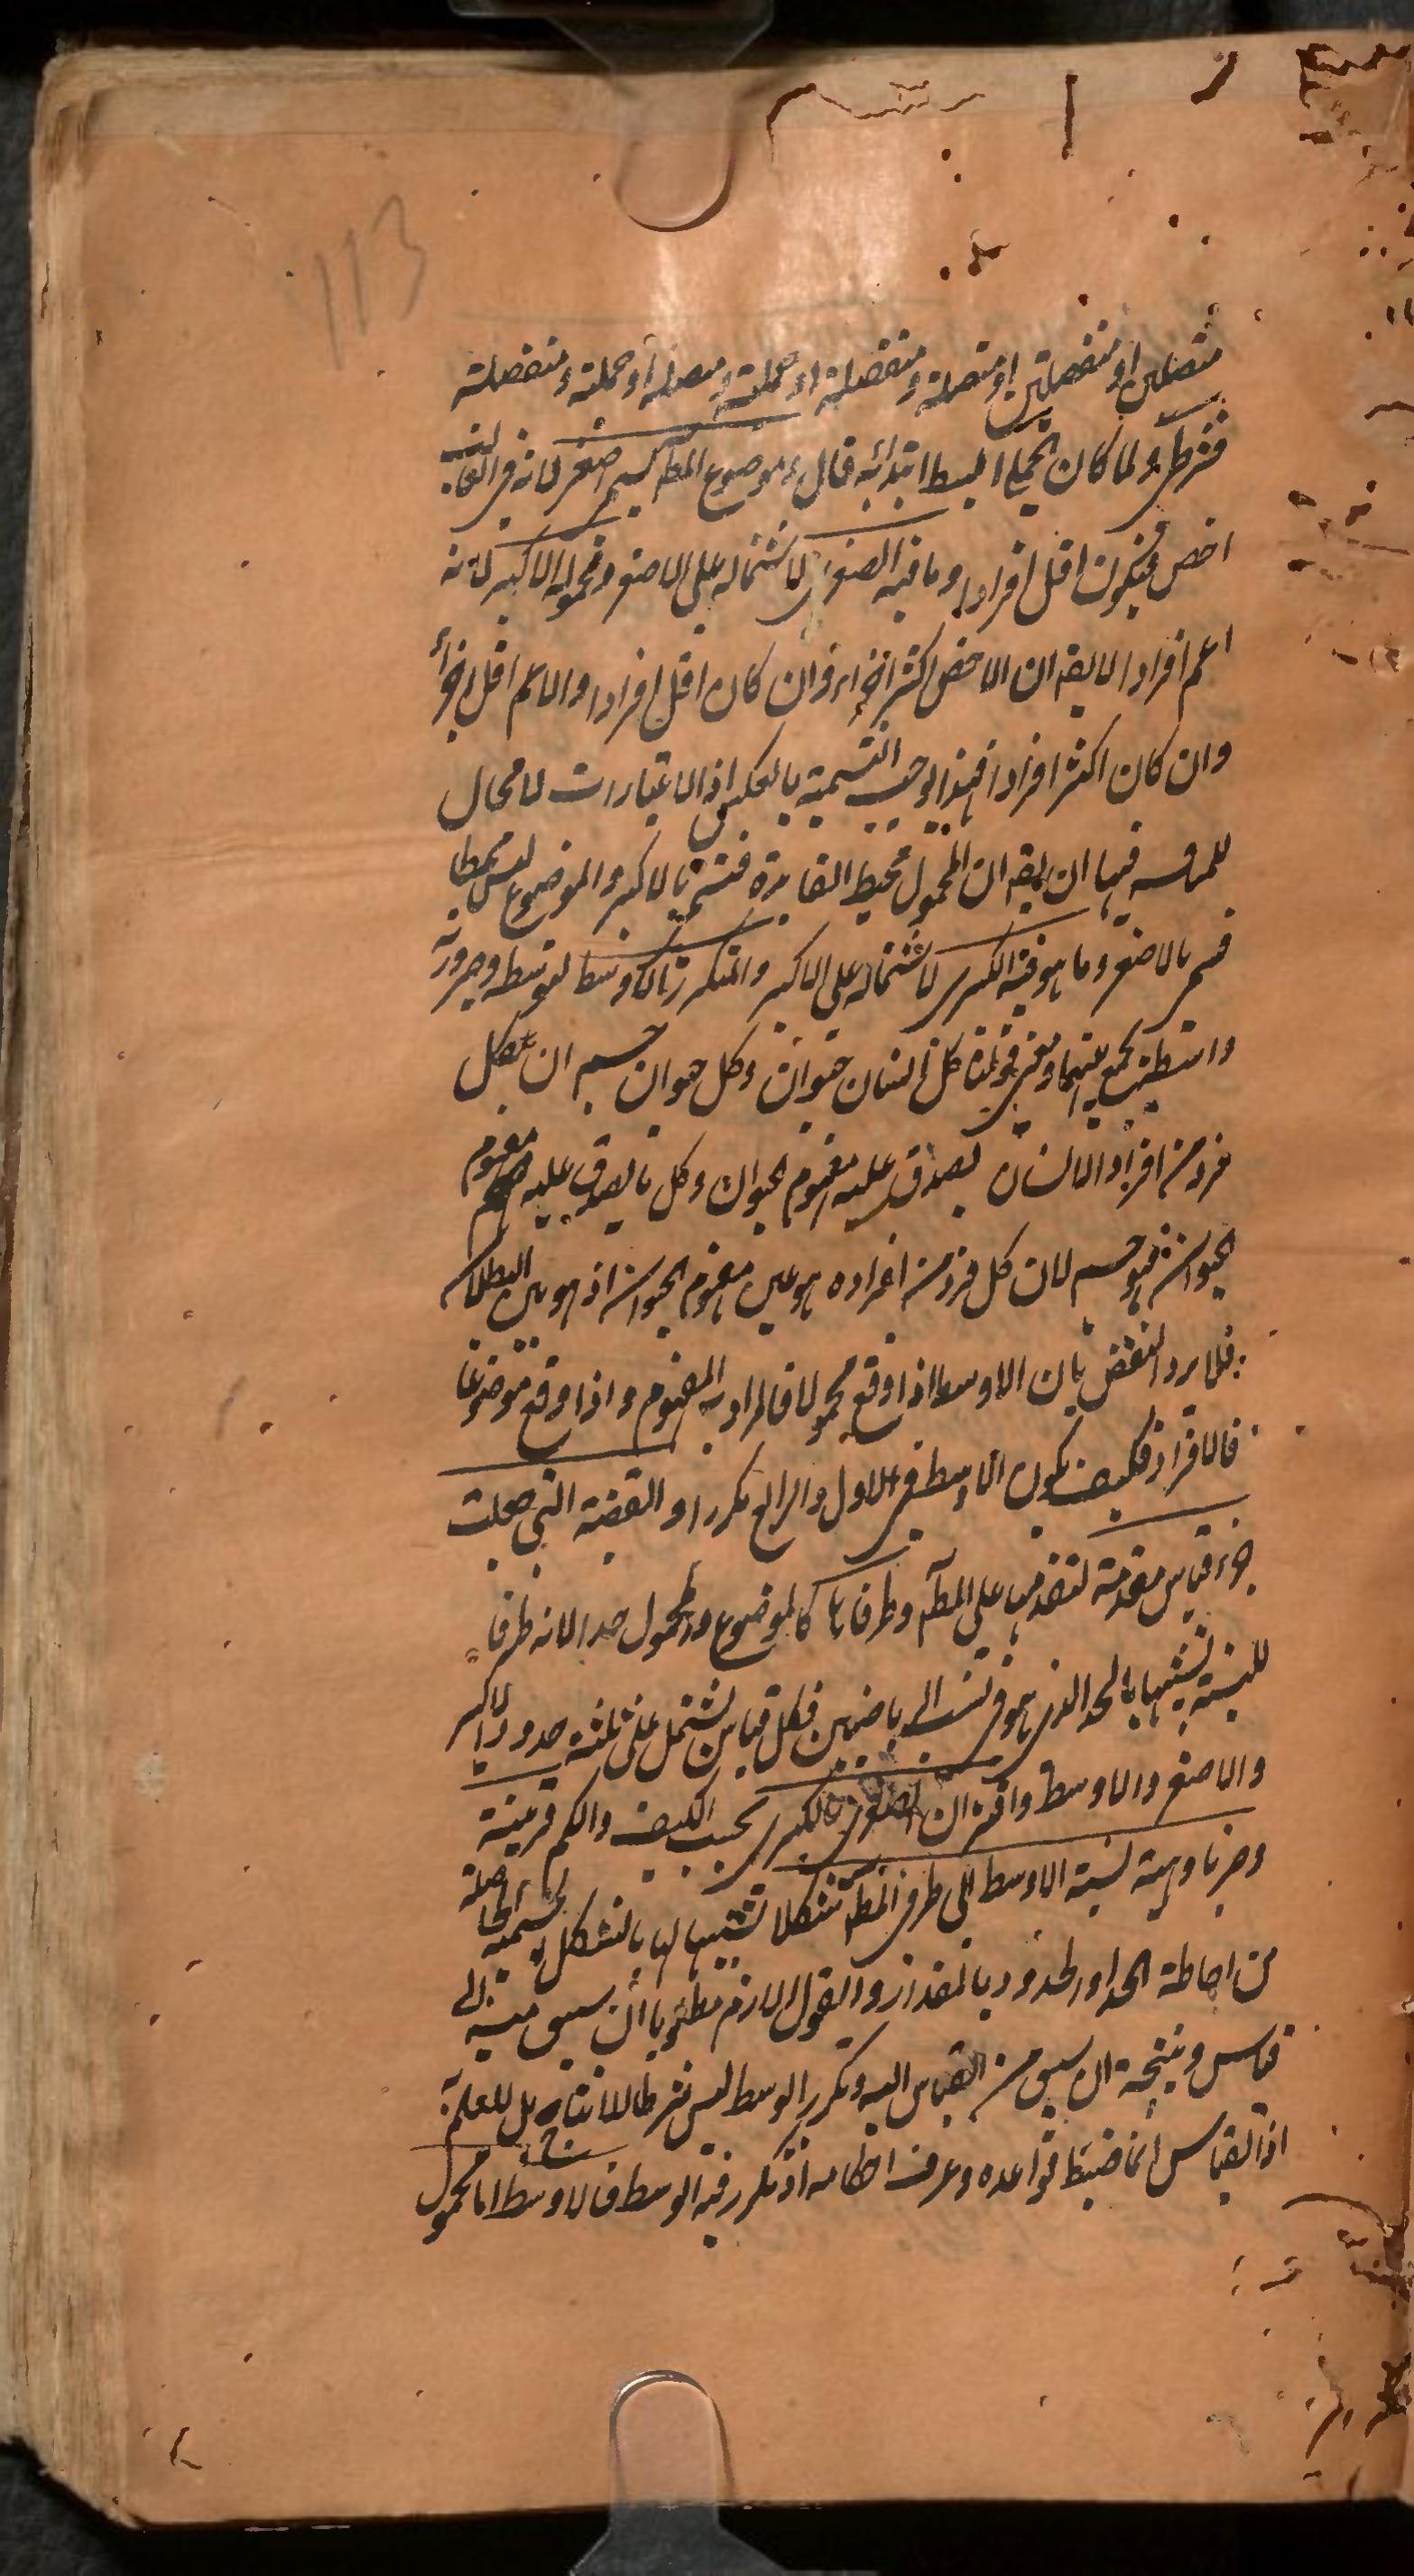 113
متصلتين او منفصلتين او متصلة و منفصلة او حملية و متصلة او حملية و منفصلة
فشرطي ولما كان الحملي ابسط ابتدأ به فقال و موضوع المط يسمى اصغر لانه في الغالب
اخص فيكون اقل افرادا وما فيه الصغرى لاشتماله على الاصغر و محموله الاكبر لانه
اعم افرادا لا يقه ان الاخص اكثر اجزاء و ان كان اقل افرادا والاعم اقل اجزاء
وان كان اكثر افرادا فهذا يوجب التسمية بالعكس اذ الاعتبارات لا مجال
للمناقشة فيها ان يقه ان المحمول محيط القاعدة فتسمى بالاكبر والموضوع ليس محيطا
فسمى بالاصغر وما هو فيه الكبرى لاشتماله على الاكبر والمتكرر الاوسط لتوسطه و صيرورته
واسطة يجمع بينهما ومعنى قولنا كل انسان حيوان وكل حيوان جسم ان كل
فرد من افراد الانسان يصدق عليه مفهوم الحيوان وكل ما يصدق عليه مفهوم
الحيوان فهو جسم لان كل فرد من افراده هو عين مفهوم الحيوان اذ هو بين البطلان
فلا يرد النقض بان الاوسط اذا وقع محمولا فالمراد به المفهوم و اذا وقع موضوعا
فالافراد فكيف يكون الاوسط في الاول والرابع مكررا و القضية التي جعلت
جزء قياس مقدمة لتقدمها على المط و طرفاها كالموضوع والمحمول حدا لانه طرف
للنسبة تشبيها بالحد الذي هو في نسب الرياضيين فكل قياس يشتمل على ثلثة حدود الاكبر
والاصغر والاوسط واقتران الصغرى بالكبرى بحسب الكيف والكم قرينة
وضربا وهيئة نسبة الاوسط الى طرفي المط شكلا تشبيها لها بالشكل الجسمية الحاصلة
من احاطة الحد او الحدود بالمقدار والقول اللازم مطلوبا ان سيق منه الى
قياس و نتيجة ان سيق من القياس اليه و تكرر الوسط ليس شرطا للانتاج بل للعلم به
اذ القياس انما ضبط قواعده و عرف احكامه اذ تكرر فيه الوسط فالاوسط اما محمول